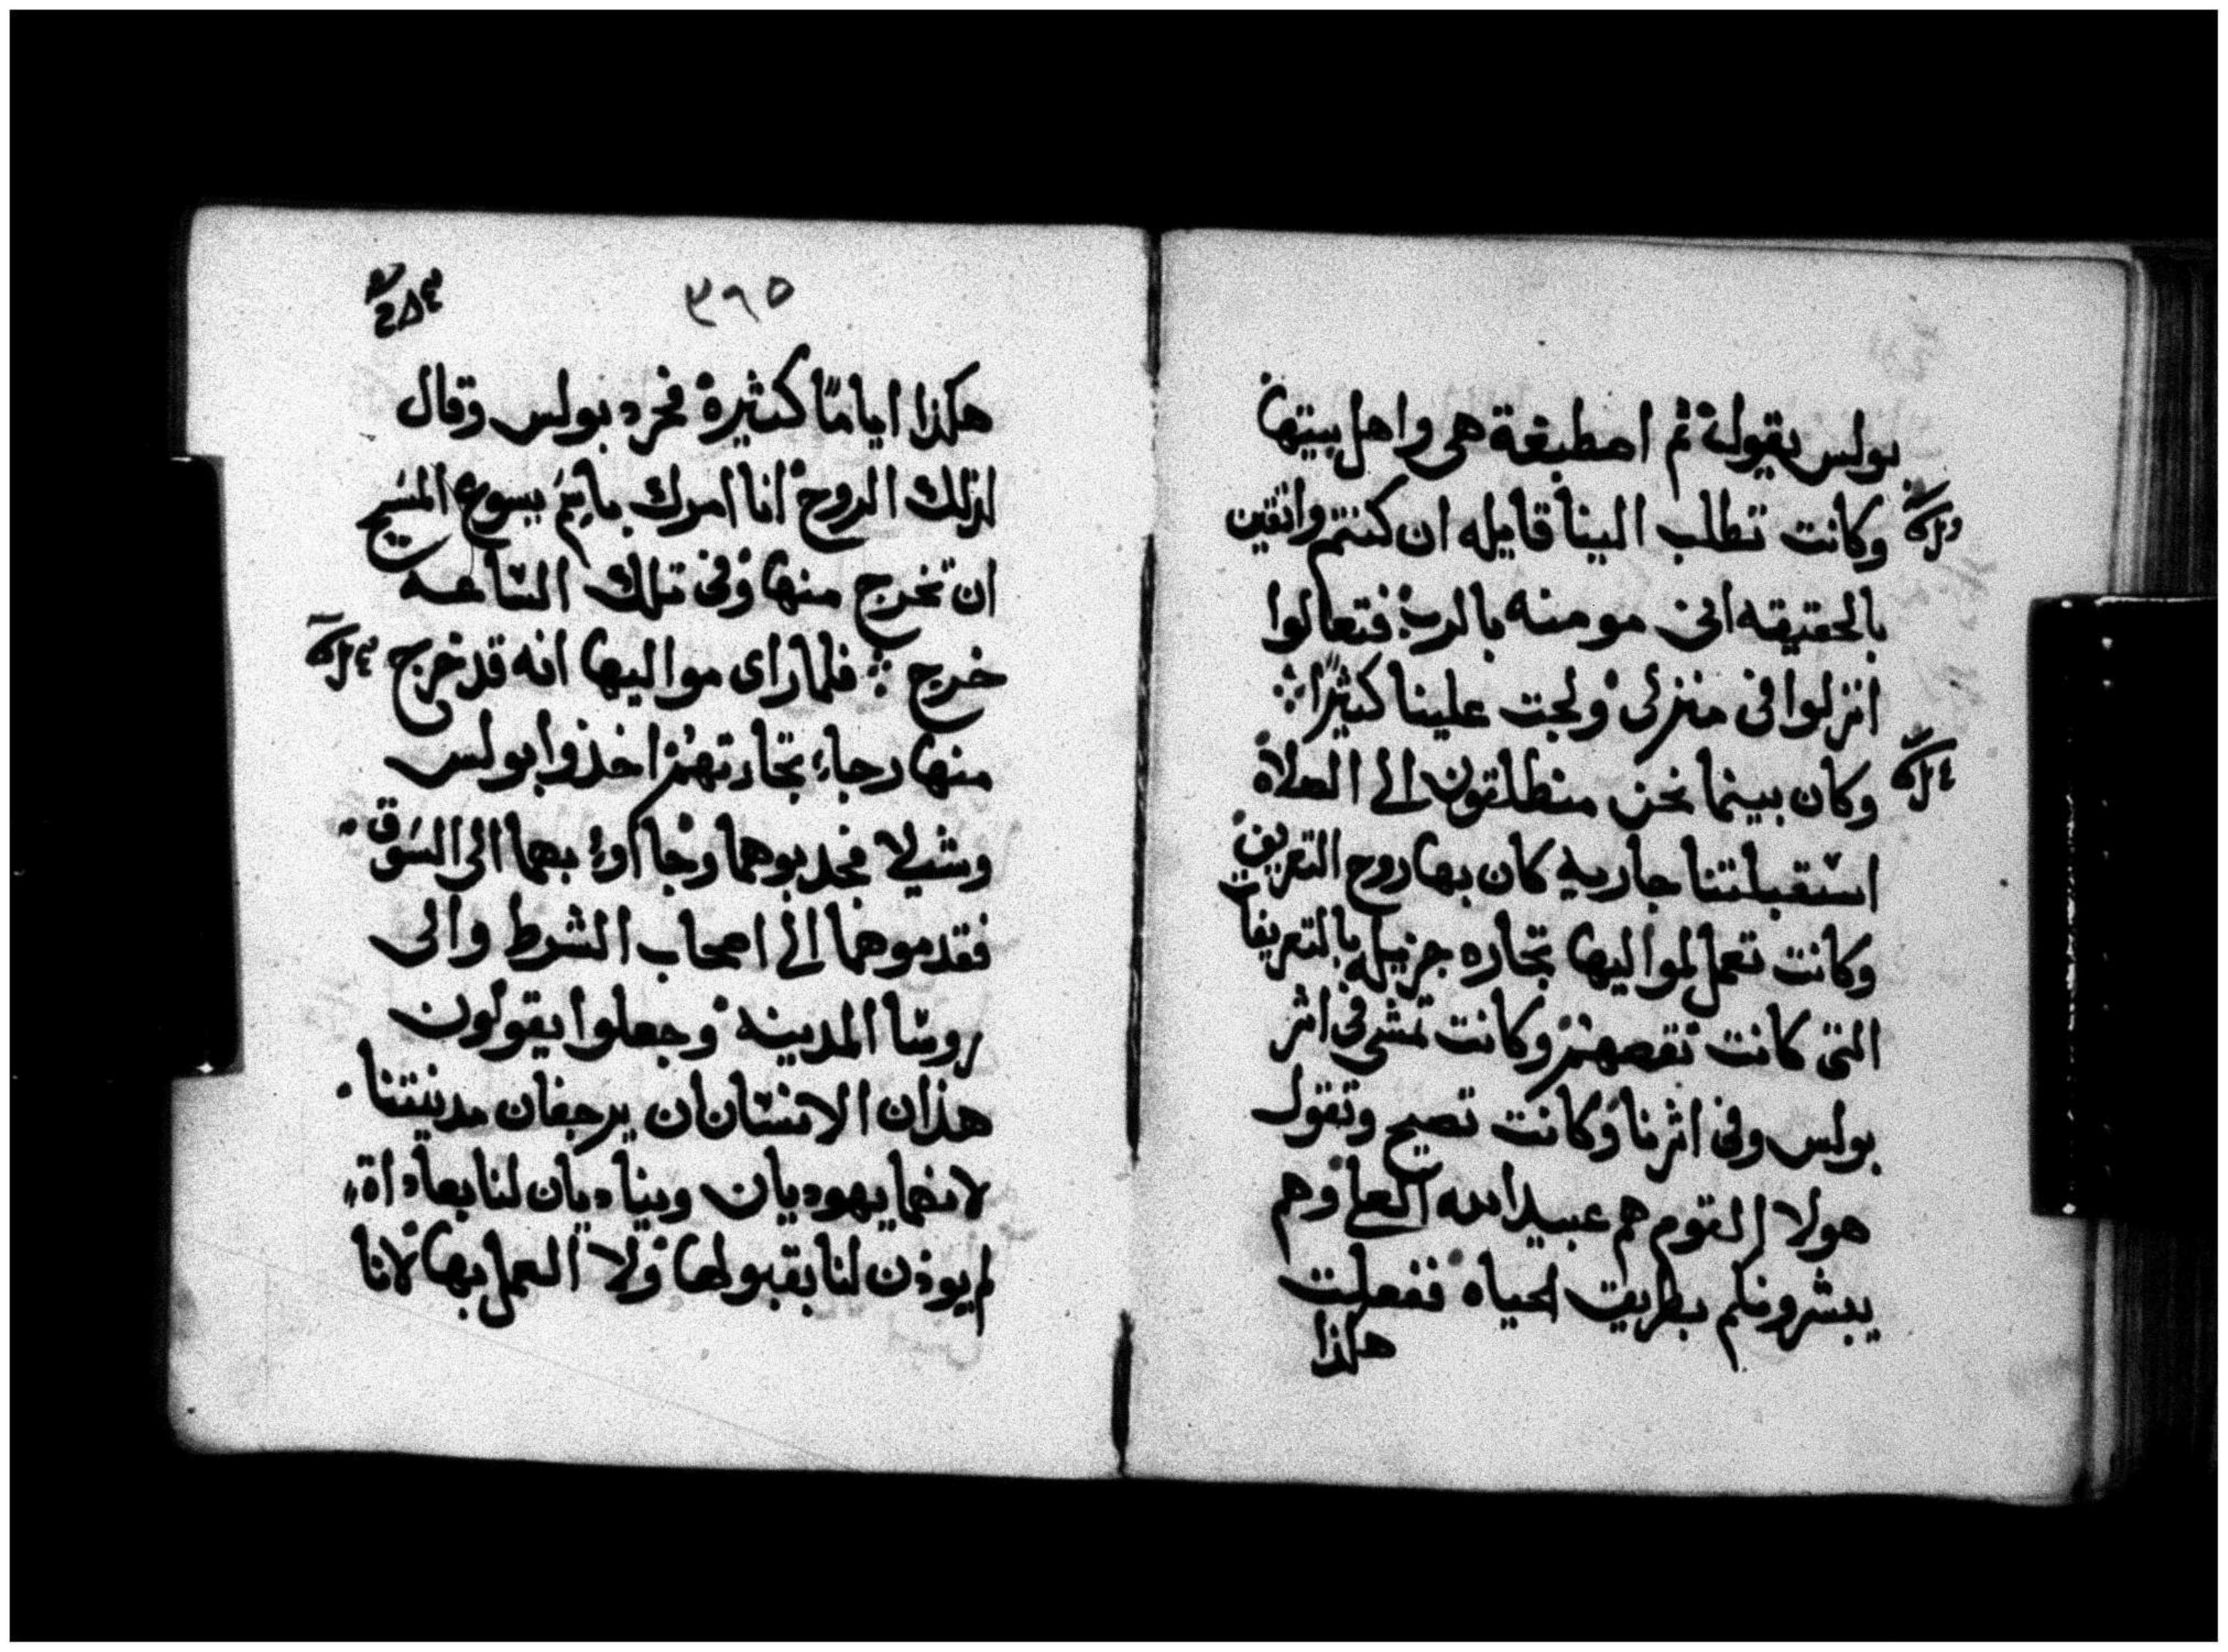 بولس يقوله ثم اصطبغة هى واهل بيتها
وكانت تطلب الينا قايله ان كنتم واثقين
بالحقيقه انى مومنه بالرب فتعالوا
انزلوا فى منزلى ولجت علينا كثيرًا
وكان بينما نحن منطلقون الى الصلاة
استقبلتنا جاريه كان بها روح التعريف
وكانت تعمل لمواليها تجاره جزيله بالتعريفات
التى كانت تقصهم وكانت تمشى فى اثر
بولس وفى اثرنا وكانت تصيح وتقول
هولا القوم هم عبيد الله العلى وهم
يبشرونكم بطريق الحياه ففعلت
هكذا
٣٩٥
هكذا ايامًا كثيرة فحرد بولس وقال
لذلك الروح انا امرك باسم يسوع المسيح
ان تخرج منها وفى تلك الساعه
خرج فلما راى مواليها انه قد خرج
منها رجاء تجارتهم اخذوا بولس
وشيلا فجدبوهما وجاآوا بهما الى السوق
فقدموهما الى اصحاب الشرط والى
روسا المدينه وجعلوا يقولون
هذان الانسانان يرجفان مدينتنا
لانهما يهوديان ويناديان لنا بعاداة
لم يوذن لنا بقبولها ولا العمل بها لانا